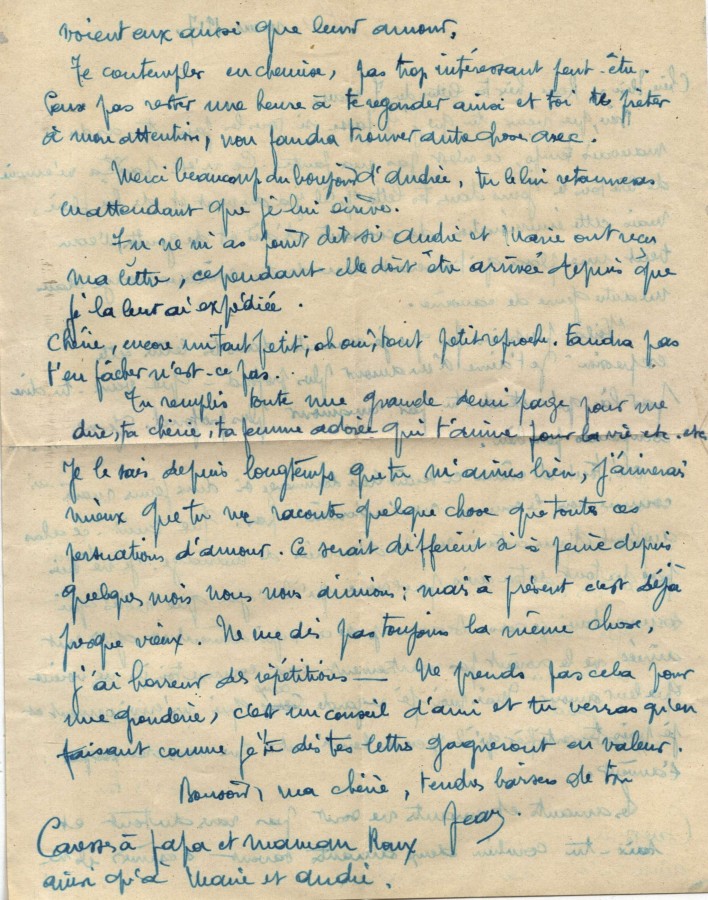 voient eux aussi que leur amour.
Te contempler en chemise, pas trop intéressant peut-être.
Peux pas rester une heure à te regarder ainsi et toi te prêter
à mon attention, nou faudra trouver autre chose avec.
Merci beaucoup du bonjour d'Andrée, tu le lui retourneras
en attendant que je lui écrive.
Tu ne m'as point dit si André et Marie ont reçu
ma lettre, cependant elle doit être arrivée depuis que
je la leur ai expédiée.
Chérie, encore un tant petit, oh oui, tout petit reproche. Faudra pas
t'en fâcher n'est-ce pas..
Tu remplis toute une grande demi page pour me
dire, ta chérie, ta femme adorée qui t'aime pour la vie etc. etc
Je le sais depuis longtemps que tu m'aimes bien, j'aimerais
mieux que tu me racontes quelque chose que toutes ces
persuations d'amour. Ce serait différent si à peine depuis
quelques mois nous nous aimions; mais à présent c'est déjà
presque vieux. Ne me dis pas toujours la même chose,
j'ai horreur des répétitions — Ne prends pas cela pour
une gronderie, c'est un conseil d'ami et tu verras qu'en
faisant comme je te dis tes lettres gagneront en valeur.
Bonsoir, ma chérie, tendres baisers de ton
Jean.
Caresses à Papa et maman Roux
ainsi qu'à Marie et André.